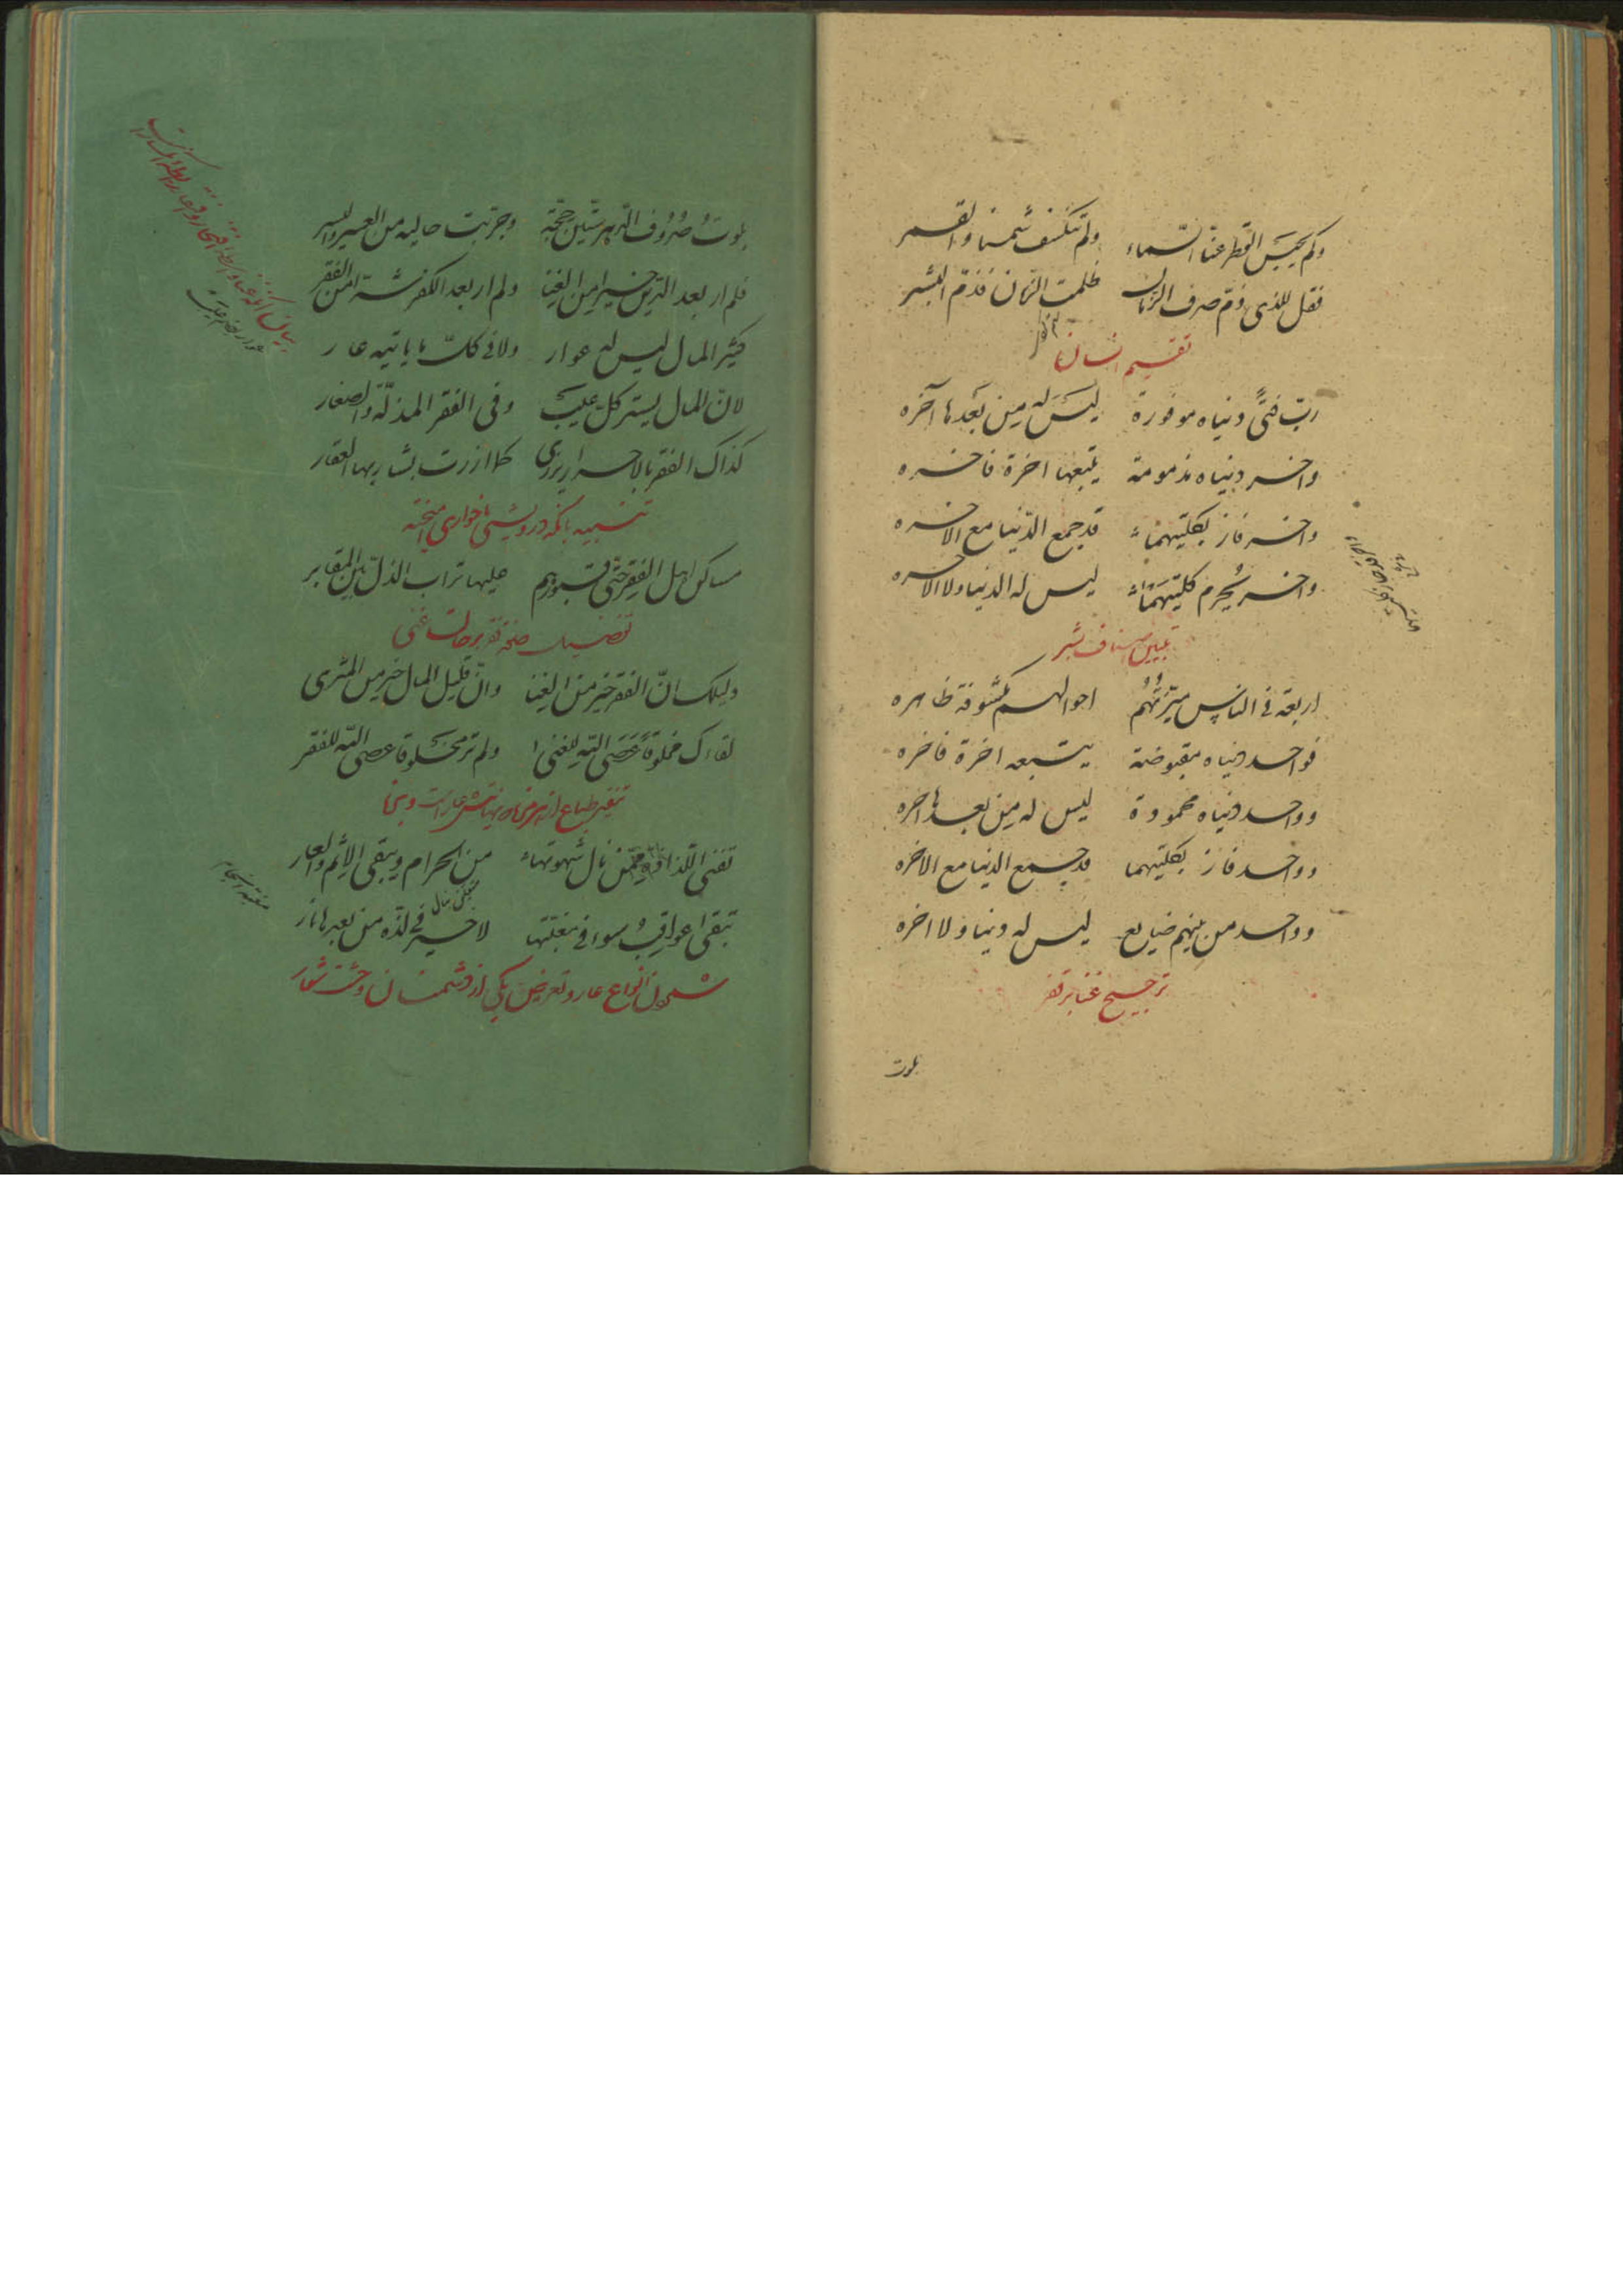 ولم يحبس القطر عنّا السّماء ولم تنكسف شمسنا والقمر
فقل للذى ذمّ صرف الزمان ظلمت الزمان فذمّ البشر
تقسيم انسان
ربّ فتًى دنياه موفورة ليسَ له مِن بَعدها آخره
واخر دنياه مذمومة يتبعها اخرة فاخره
واخر فاز بكلتيهما قد جمع الدّنيا مع الاخره
واخر يُحرم كلتيهما ليس له الدنيا ولا الاخره
تبيين اصناف بشر
اربعة فى الناس ميّزتُهُم احوالهم مكشوفة ظاهره
فواحد دنياه مقبوضة يتبعه اخرة فاخره
وواحد دنياه محمودة ليس له مِن بعدها اخره
وواحد فاز بكلتيهما قد جمع الدنيا مع الاخره
وواحد من بينهم ضايع ليس له دنيا ولا اخره
ترجيح غنا بر فقر
بلوت
بلوتُ صُرُوف الدّهر ستّين حجّة وجرّبت حاليه من العسر واليسر
فلم ار بعد الدّين خيرا مِن الغِنا ولم ار بعد الكفر شرّا من الفقر
كثير المال ليس له عوار ولا فى كلّ ما ياتيه عار
لانّ المال يستر كلّ عيب وفى الفقر المذلّة والصغار
كذاك الفقر بالاحرار يزرى كما ازرت بشاربها العقار
تنبيه بانكه درويشى با خوارى اميخته
مساكن اهل الفقر حتّى قبورهم عليها تراب الذلّ بين المقابر
تفضيل فقر بر حالت غنى
دليلك انّ الفقر خير من الغنا وانّ قليل المال خير من المثرى
لقاءك مخلوقًا عَصَى اللّه للغنى ولم تر مخلوقا عصى اللّه للفقر
تفنى اللّذاذة ممّن نال شهوتها من الحرام ويبقى الاثم والعار
تبقى عواقِبُ سوء فى مغبّتها لا خير فى لذّه من بعدها نار
شمول انواع عار وتعريض بيكى از دشمنان وحشت شعار